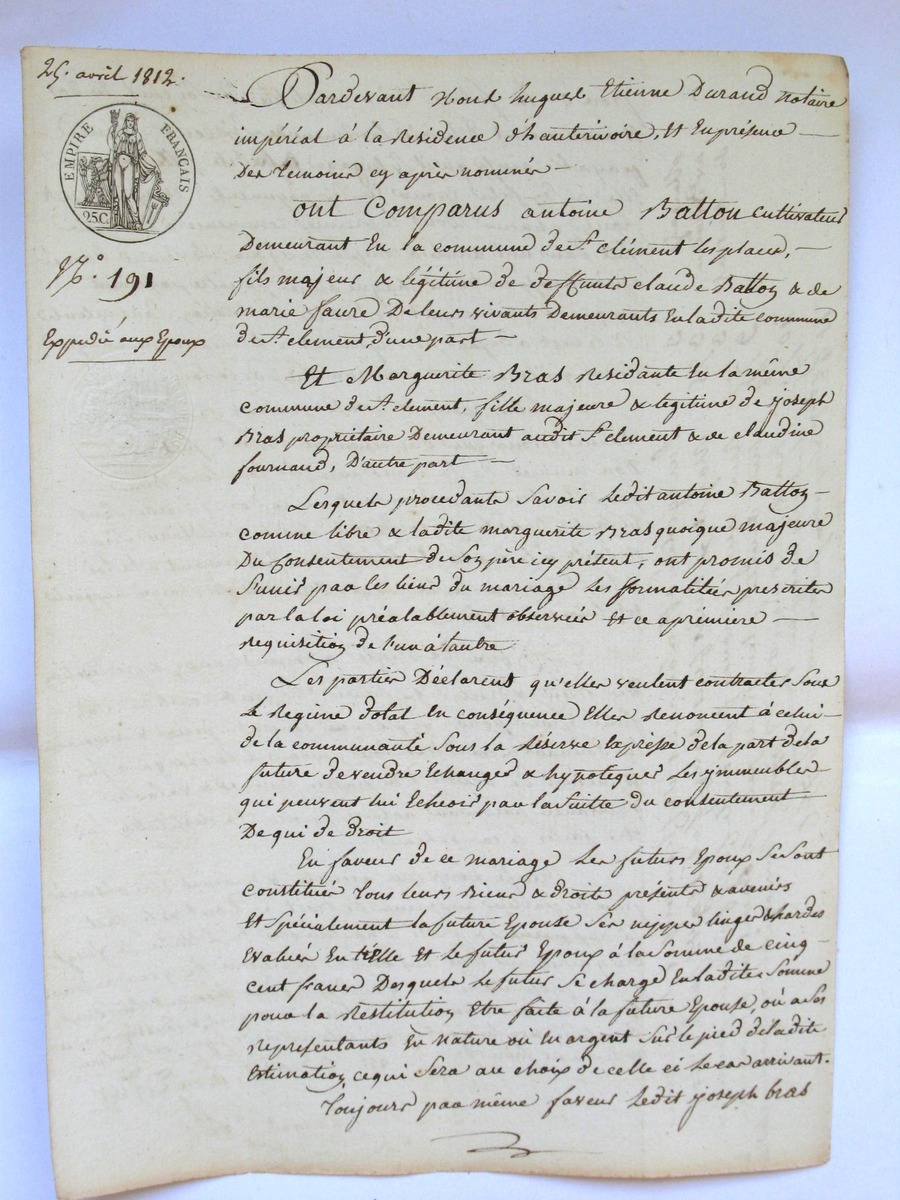 25. avril 1812.
EMPIRE FRANÇAIS
25C.
N.° 191
Expedié aux Epoux
Pardevant Nous hugues Etienne Durand Notaire
impérial à la Residence d'hauterivoire, Et En présence
Des temoins cy après nommés
ont Comparus antoine Batton cultivateur
Demeurant En la commune de St. clément les places,
fils majeur & légitime de deffunts claude Batton & de
marie faure De leurs vivants Demeurants En ladite commune
de St. clement, d'une part
Et Marguerite Bras Residante En la même
commune de St. clement, fille majeure & legitime de joseph
Bras propriétaire Demeurant audit St. clement & de claudine
fournand, D'autre part
Lesquels procedants Savoir ledit antoine Batton
comme libre & ladite marguerite Bras quoique majeure
Du Consentement de Son père icy présent, ont promis de
S'unir par les liens du mariage les formalitées prescrites
par la loi préalablement observées et ce a première
Requisition de l'un à l'autre
Les parties Déclarent qu'elles veulent contracter Sous
le Regime dotal En conséquence Elles Renoncent à celui
de la communauté Sous la Réserve Expresse de la part de la
future de vendre Echanger & hypotequer les ymmeubles
qui peuvent lui Echeoir par la Suitte du consentement
De qui de droit
En faveur de ce mariage les futurs Epoux Se Sont
constitués tous leurs Biens & droits présents & avenirs
Et spécialement la future Epouse Ses nippes linges & hardes
Evalués Entr'Elle et le futur Epoux à la Somme de cinq
cent francs Desquels le futur Se charge En ladite Somme
pour la Restitution Etre faite à la future Epouse, ou a Ses
Représentants En nature ou En argent Sur le pied de ladite
Estimation, ce qui Sera au choix de celle ci le cas arrivant.
Toujours par même faveur ledit joseph bras